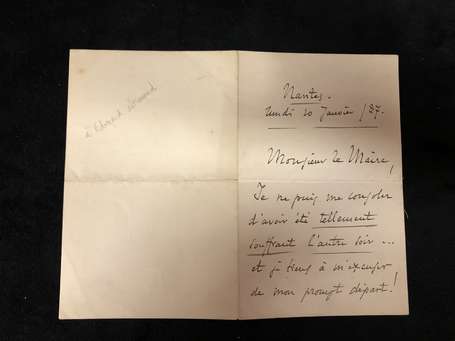 à Edouard
Nantes.
Lundi 10 Janvier /27.
Monsieur le Maire,
Je ne puis me consoler
d'avoir été tellement
souffrant l'autre soir ...
et je tiens à m'excuser
de mon prompt départ !